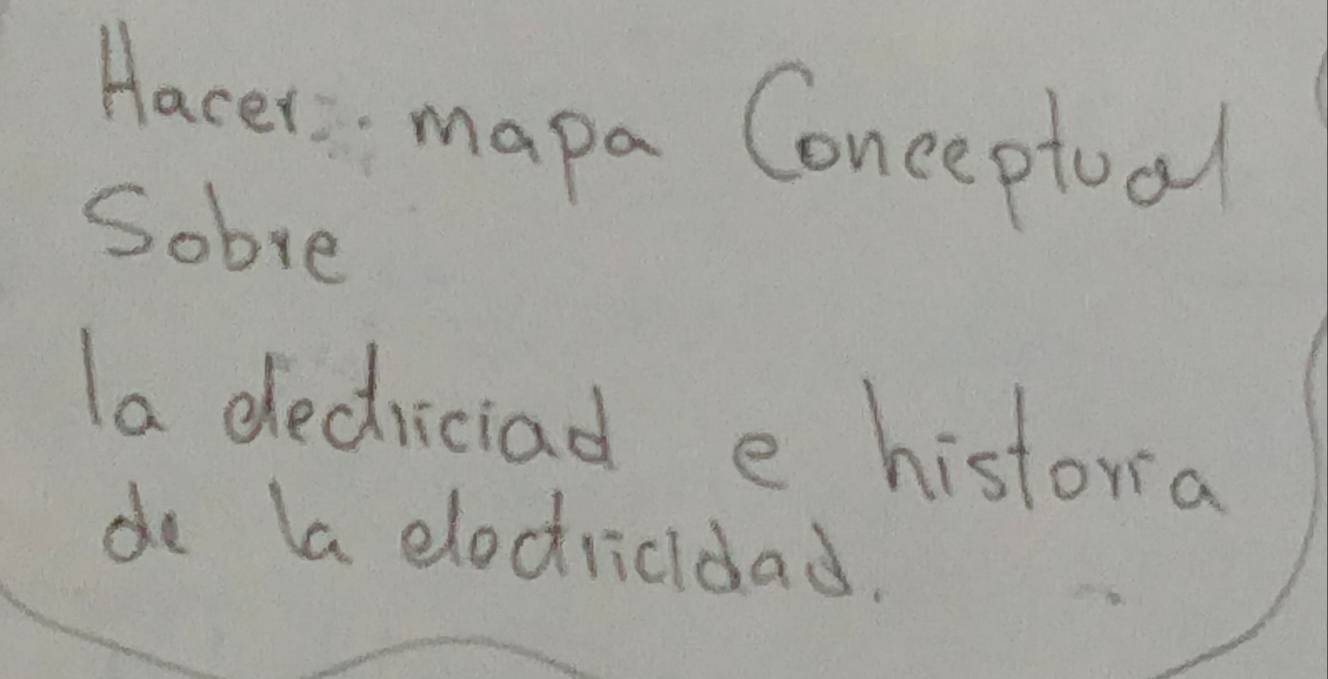 Hacer mapa Conceptual
Sobre
la electriciad e historia
de la electricidad.